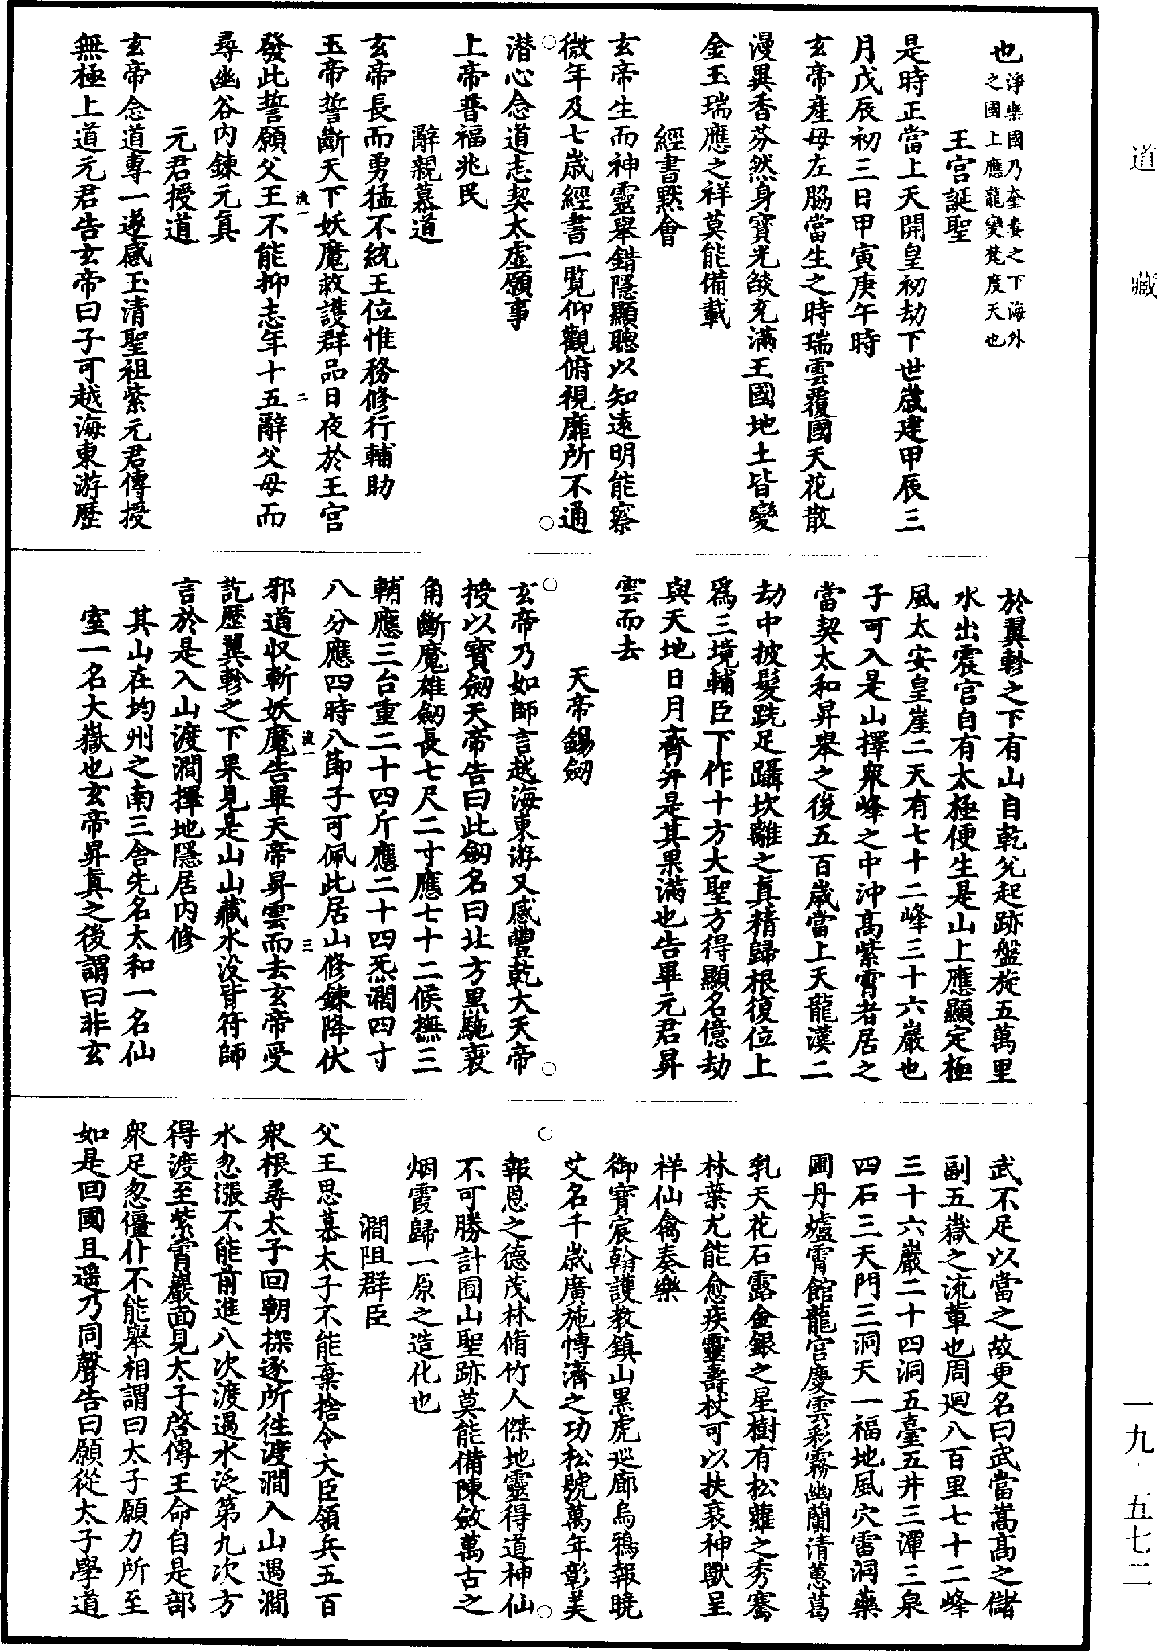 道藏
也淨樂國乃奎婁之下海外之國上應龍變梵度天也
王宮誕聖
是時正當上天開皇初劫下世歲建甲辰三
月戊辰初三日甲寅庚午時
玄帝產母左脇當生之時瑞雲覆國天花散
漫異香芬然身寶光燄充滿王國地土皆變
金玉瑞應之祥莫能備載
經書默會
玄帝生而神靈舉錯隱顯聰以知遠明能察
微年及七歲經書一覽仰觀俯視靡所不通
潜心念道志契太虛願事
上帝普福兆民
辭親慕道
玄帝長而勇猛不統王位惟務修行輔助
玉帝誓斷天下妖魔救護群品日夜於王宮
發此誓願父王不能抑志年十五辭父母而
尋幽谷內鍊元真
元君授道
玄帝念道專一遂感玉清聖祖紫元君傳授
無極上道元君告玄帝曰子可越海東游歷
於翼軫之下有山自乾兌起跡盤旋五萬里
水出震宮自有太極便生是山上應顯定極
風太安皇崖二天有七十二峰三十六巖也
子可入是山擇衆峰之中沖高紫霄者居之
當契太和昇舉之後五百歲當上天龍漢二
劫中披髮跣足躡坎離之真精歸根復位上
爲三境輔臣下作十方大聖方得顯名億劫
與天地日月齊并是其果滿也告畢元君昇
雲而去
天帝錫劒
玄帝乃如師言越海東游又感豐乾大天帝
授以寶劒天帝告曰此劒名曰北方黑馳衮
角斷魔雄劒長七尺二寸應七十二候撫三
輔應三台重二十四斤應二十四炁濶四寸
八分應四時八節子可佩此居山修鍊降伏
邪道収斬妖魔告畢天帝昇雲而去玄帝受
訖歷翼軫之下果見是山山藏水沒皆符師
言於是入山渡澗擇地隱居內修
其山在均州之南三舍先名太和一名仙
室一名大嶽也玄帝昇真之後謂曰非玄
武不足以當之故更名曰武當嵩高之儲
副五嶽之流輩也周迴八百里七十二峰
三十六巖二十四洞五臺五井三潭三泉
四石三天門三洞天一福地風穴雷洞藥
圃丹壚霄館龍宮慶雲彩霧幽蘭清蕙葛
乳天花石露金銀之星樹有松蘿之秀騫
林葉尤能愈疾靈壽杖可以扶衰神獸呈
祥仙禽奏樂
御寶宸翰護教鎮山黑虎巡廊烏鴉報曉
艾名千歲廣施博濟之功松號萬年彰美
報恩之德茂林脩竹人傑地靈得道神仙
不可勝計囿山聖跡莫能備陳斂萬古之
烟霞歸一原之造化也
澗阻群臣
父王思慕太子不能棄捨令大臣領兵五百
衆根尋太子回朝探逐所往渡澗入山遇澗
水忽漲不能前進八次渡遇水泛第九次方
得渡至紫霄巖面見太子啓傳王命自是部
衆足忽僵仆不能舉相謂曰太子願力所至
如是回國且遥乃同聲告曰願從太子學道
一九·五七二